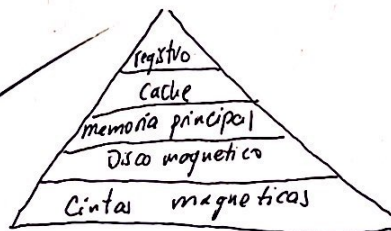 registro
cache
memoria principal
Disco magnetico
Cintas magneticas